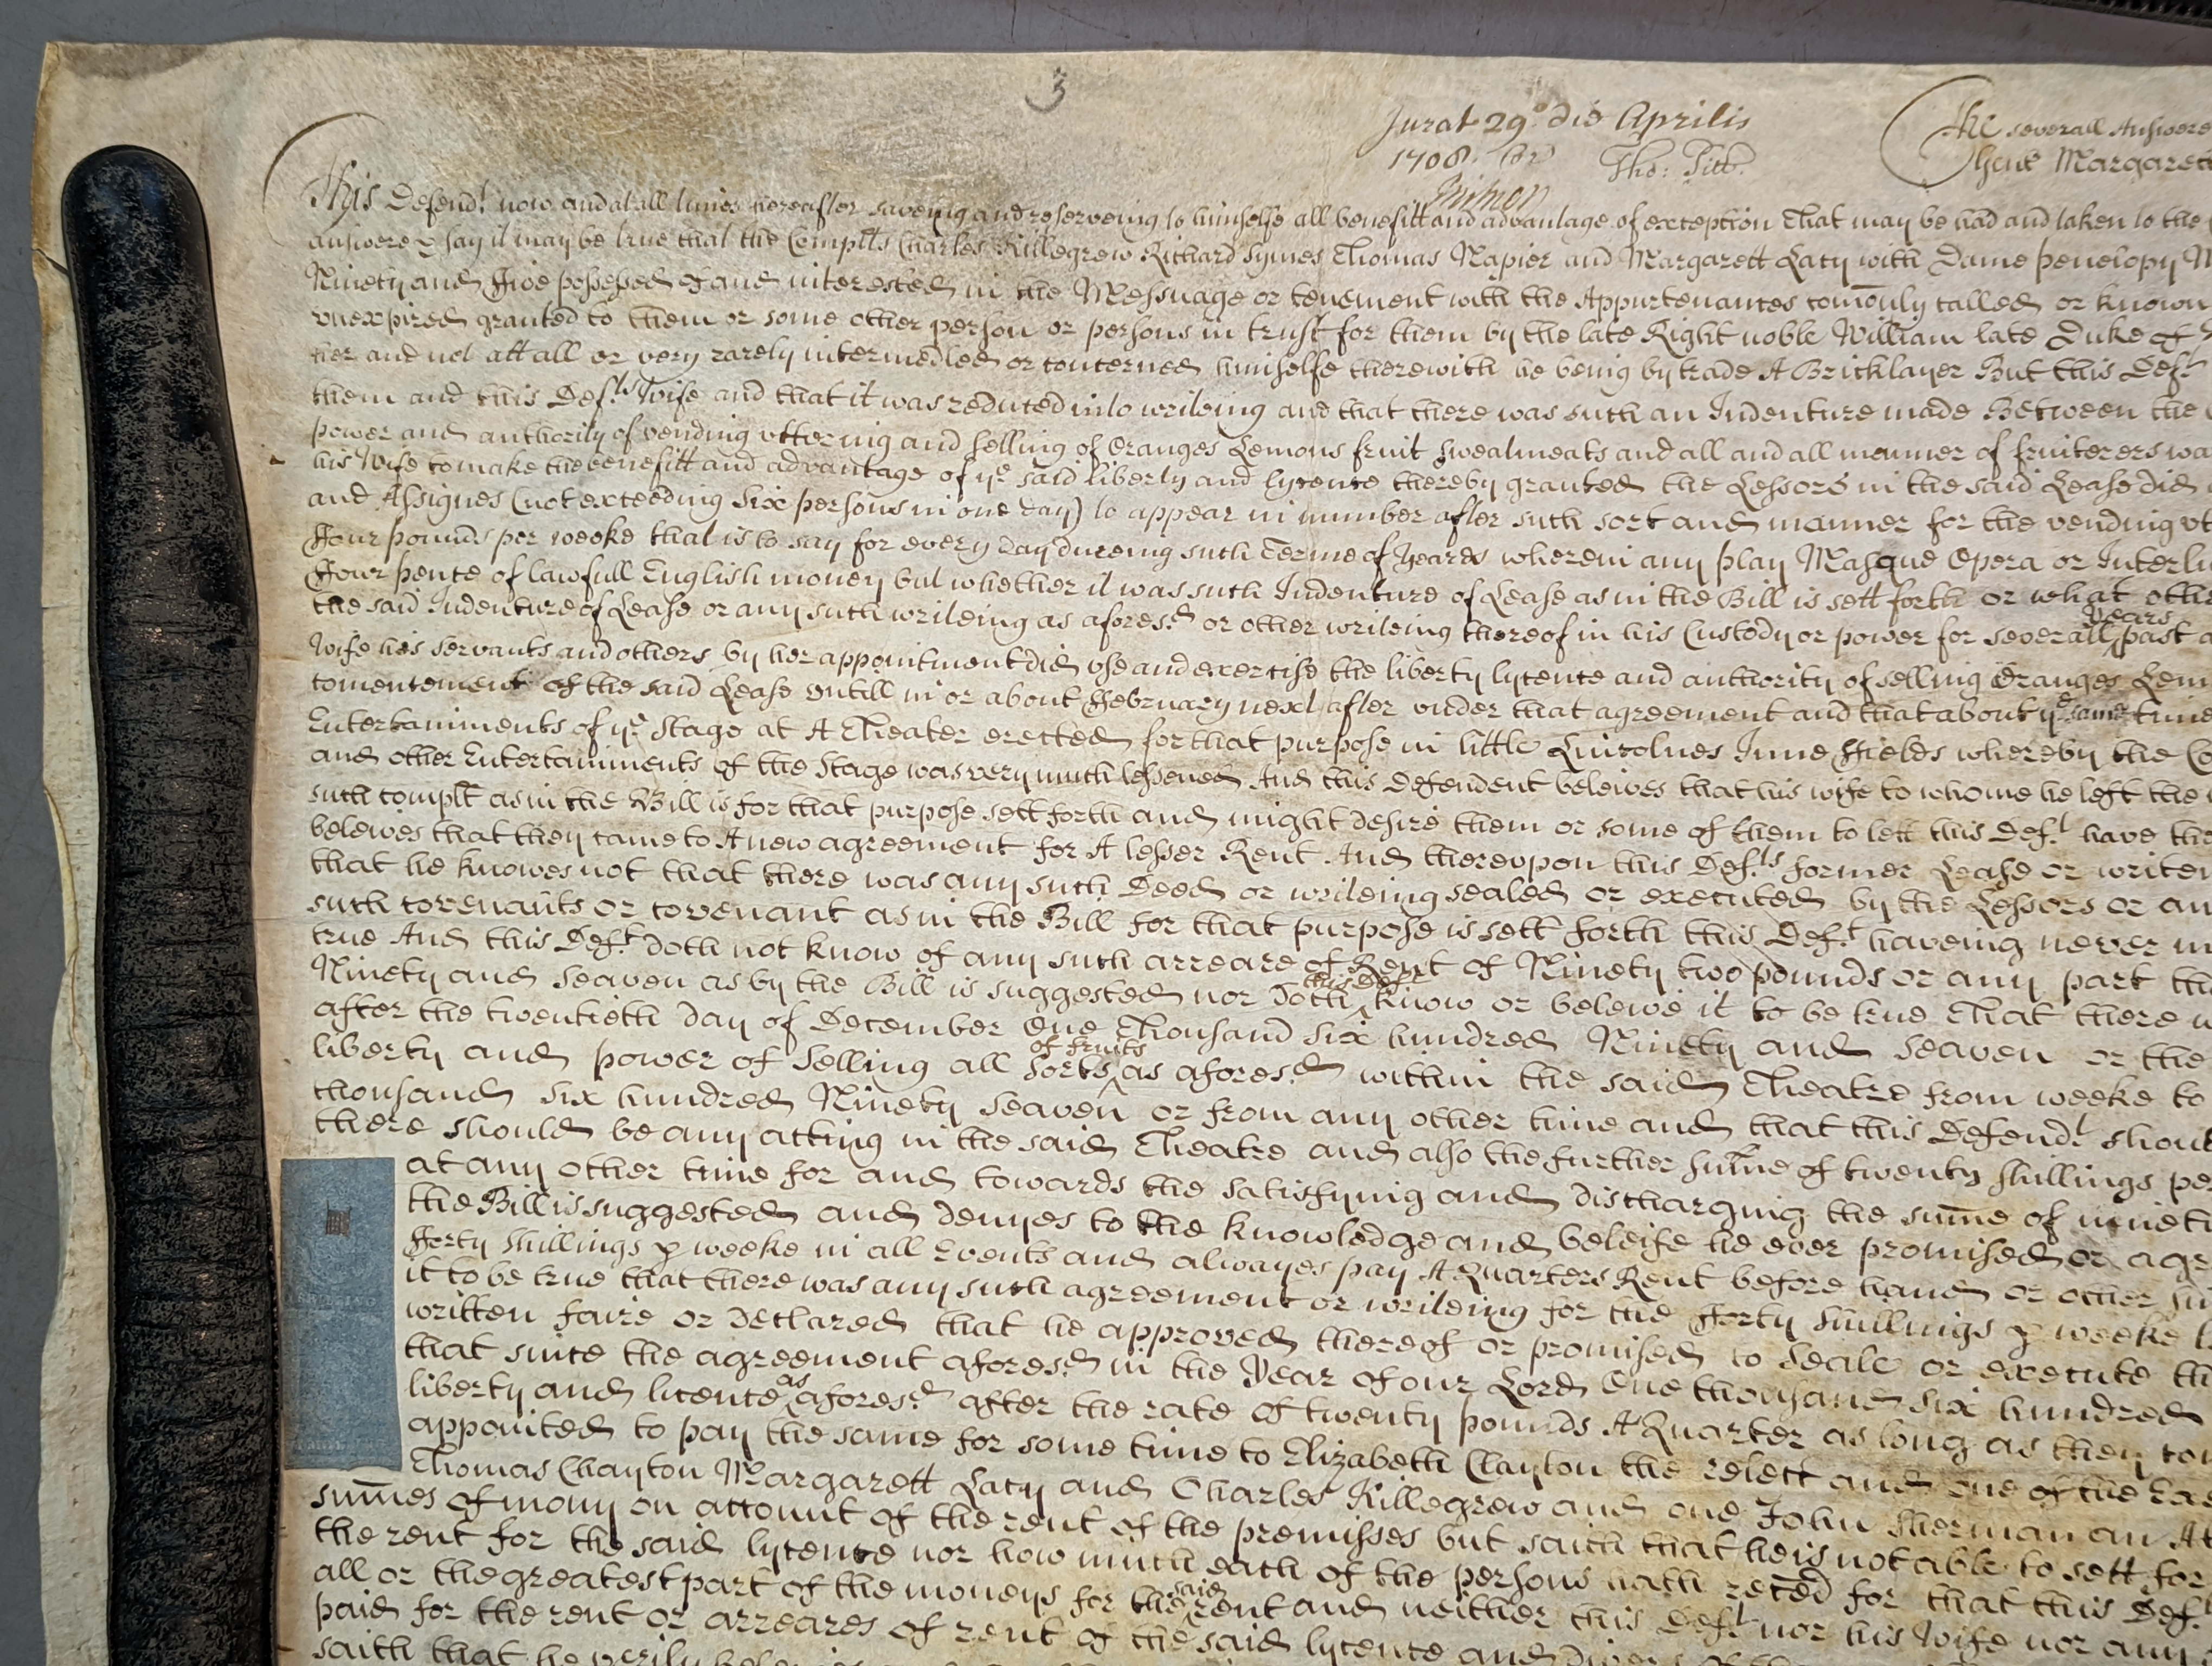 3
Jurat 29o die Aprilis
1708
Tho: Pitt
The severall Answere
Margarett
This Defendt. now and at all times hereafter saveing and reserveing to himselfe all benefitt and advantage of exception that may be had and taken to the
answere & say it may be true that the Complts Charles Killegrew Richard Symes Thomas Napier and Margarett Lacy with Dame Penelopy
Ninety and Five possessed of and interested in the Messuage or tenement with the Appurtenances comonly called or known
vnexpired granted to them or some other person or persons in trust for them by the late Right noble William late Duke of
her and not att all or very rarely intermedled or concerned himselfe therewith he being by trade A Bricklayer But this Deft
them and this Defts Wife and that it was reduced into writeing and that there was such an Indenture made Between the
power and authority of vending vttering and selling of Oranges Lemons fruit sweatmeats and all and all manner of fruiterers wa
his Wife to make the benefitt and advantage of ye said liberty and lycence thereby granted the Lessors in the said Lease did
and Assignes (not exceeding six persons in one day) to appear in number after such sort and manner for the vending vt
Four pounds per weeke that is to say for every day dureing such Terme of Yeares wherein any play Masque Opera or Interlu
Four pence of lawfull English money but whether it was such Indenture of Lease as in the Bill is sett forth or what othe
the said Indenture of Lease or any such writeing as aforesd or other writeing thereof in his Custody or power for severall years past a
Wife his servants and others by her appointment did vse and exercise the liberty lycence and authority of selling Oranges Lem
comencement of the said Lease vntill in or about February next after vnder that agreement and that about ye same time
Entertainments of ye Stage at A Theater erected for that purpose in little Lincolnes Inne Fields whereby the Co
and other Entertainments of the Stage was very much lessened And this Defendent beleives that his wife to whome he left the
such complt as in the Bill is for that purpose sett forth and might desire them or some of them to lett this Deft. have the
beleives that they came to A new agreement for A lesser Rent And therevpon this Defts former Lease or writei
that he knowes not that there was any such Deed or writeing sealed or executed by the Lessors or an
such covenants or covenant as in the Bill for that purpose is sett forth this Deft haveing never
true And this Deft doth not know of any such arreare of Rent of Ninety two pounds or any part the
Ninety and Seaven as by the Bill is suggested nor doth this Deft know or beleive it to be true That there w
after the twentieth day of December One Thousand six hundred Ninety and Seaven or the
liberty and power of Selling all sorts of fruits as aforesd within the said Theatre from weeke to
thousand six hundred Ninety Seaven or from any other time and that this Defendt shoul
there should be any acting in the said Theatre and also the further sume of twenty shillings pe
at any other time for and towards the satisfying and discharging the sume of ninety
the Bill is suggested and denyes to the knowledge and beleife he ever promised or agr
Forty shillings p weeke in all Events and alwayes pay A Quarters Rent before hand or other
it to be true that there was any such agreement or writeing for the Forty shillings p weeke
written faire or declared that he approved thereof or promised to seale or execute th
that since the agreement aforesd in the Year of our Lord One thousand six hundred
liberty and licence as aforesd after the rate of twenty pounds A Quarter as long as they
appointed to pay the same for some time to Elizabeth Clayton the relect and one of the
Thomas Clayton Margarett Lacy and Charles Killegrew and one John Sherman an
sumes of mony on account of the rent of the premisses but saith that he is not able to sett for
the rent for the said lycence nor how much each of the persons hath reced for that this Deft
all or the greatest part of the moneys for the said rent and neither this Deft nor his Wife nor any
paid for the rent or arreares of rent of the said lycence and
saith that he verily